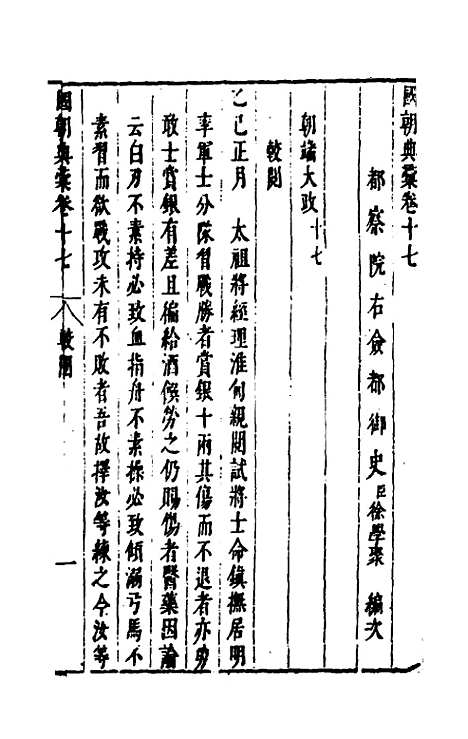 國朝典彙卷十七
都察院右僉都御史臣徐學聚 編次
朝端大政十七
較閱
乙巳正月 太祖將經理淮甸親閱試將士命鎮撫居明
率軍士分隊習戰勝者賞銀十兩其傷而不退者亦勇
敢士賞銀有差且徧給酒饌勞之仍賜傷者醫藥因諭
云白刃不素持必致血指舟不素操必致傾溺弓馬不
素習而欲戰攻未有不敗者吾故擇汝等練之今汝等
國朝典彙卷十七 較閱 一